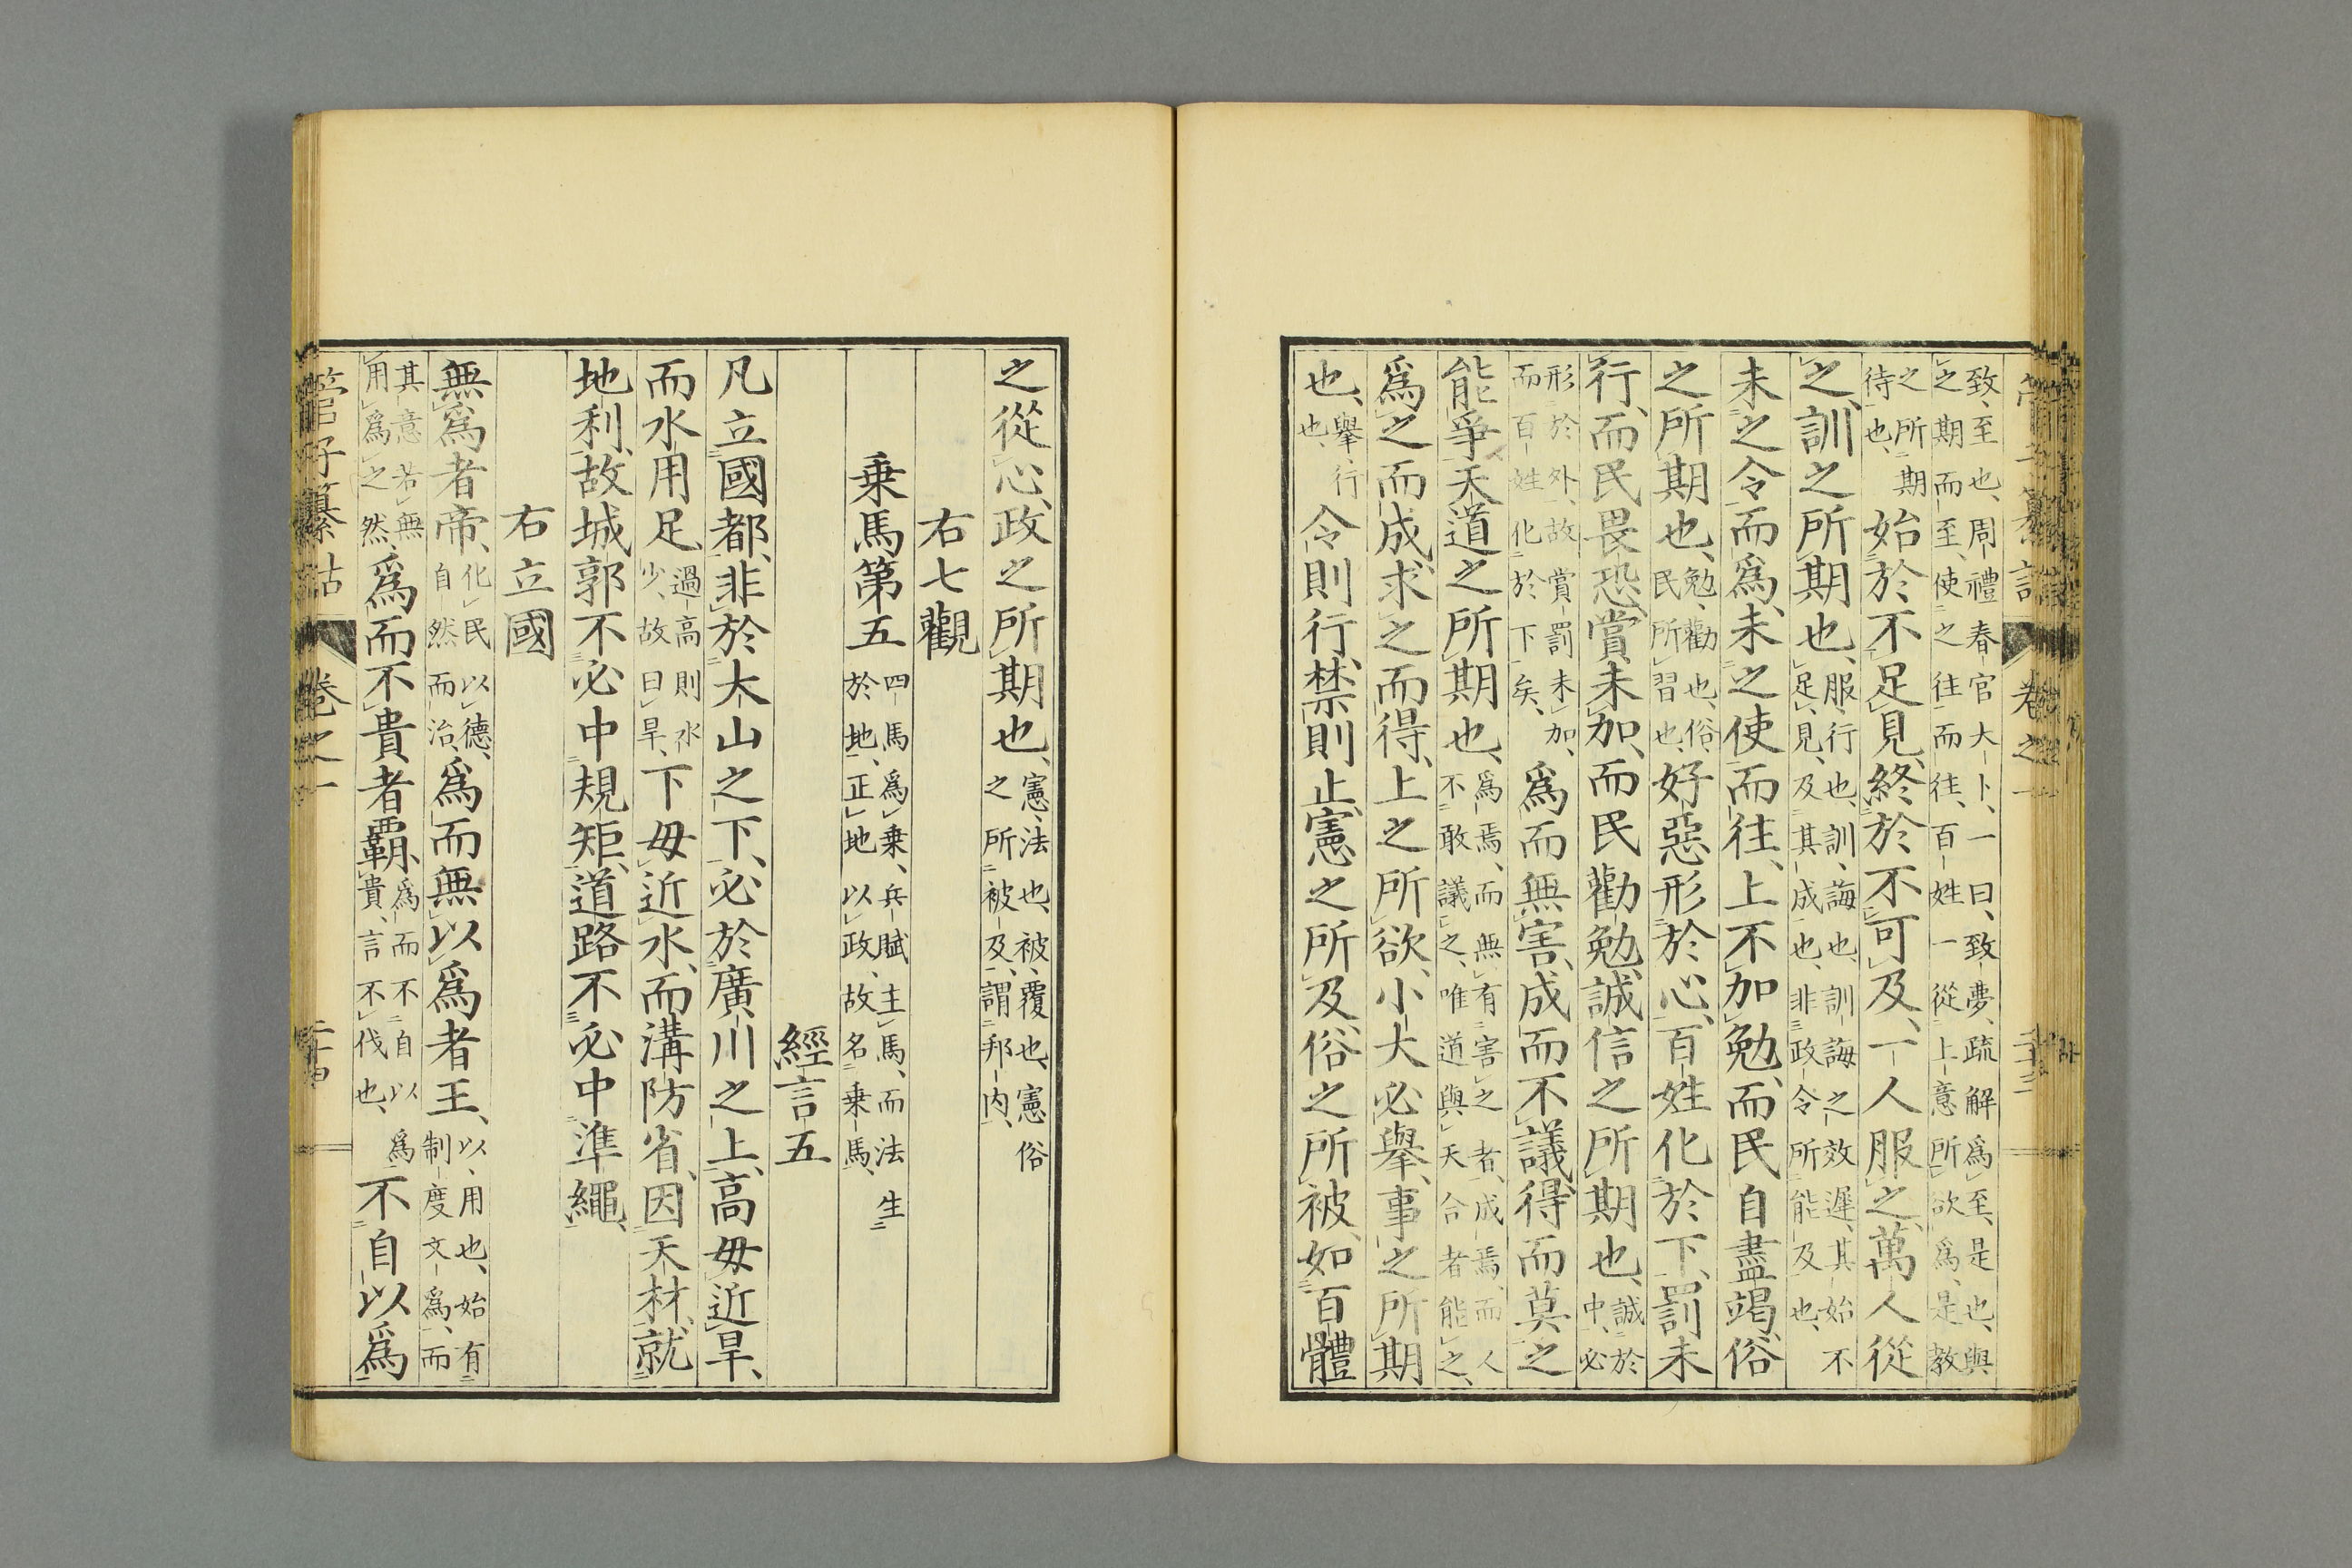 致、至也、周禮春官大卜、一曰、致夢、疏解爲至、是也、與
之期而至、使之往而往、百姓一從上意所欲爲、是敎
之所期
待也、
始於不足見、終於不可及、一人服之、萬人從
之、訓之所期也、
服、行也、訓、誨也、訓誨之效遲、其始不
足見、及其成也、非政令所能及也、
未之令而爲、未之使而往、上不加勉、而民自盡竭、俗
之所期也、
勉、勸也、俗、
民所習也、
好惡形於心、百姓化於下、罰未
行、而民畏恐、賞未加、而民勸勉、誠信之所期也、
誠於
中、必
形於外、故賞罰未加、
而百姓化於下矣、
爲而無害、成而不議、得而莫之
能爭、天道之所期也、
爲焉、而無有害之者、成焉、而人
不敢議之、唯道與天合者能之、
爲之而成、求之而得、上之所欲、小大必擧、事之所期
也、
擧、行
也、
令則行、禁則止、憲之所及、俗之所被、如百體
之從心、政之所期也、
憲、法也、被、覆也、憲俗
之所被及、謂邦内、
右七觀
乘馬第五
四馬爲乘、兵賦主馬、而法生
於地、正地以政、故名乘馬、
經言五
凡立國都、非於大山之下、必於廣川之上、高毋近旱、
而水用足
過高則水
少、故曰旱、
下毋近水、而溝防省、因天材、就
地利、故城郭不必中規矩、道路不必中準繩、
右立國
無爲者帝、
化民以德、
自然而治、
爲而無以爲者王、
以、用也、始有
制度文爲、而
其意若無
用爲之然、
爲而不貴者霸、
爲而不自以爲
貴、言不伐也、
不自以爲
管子纂詁
卷之一
二十四